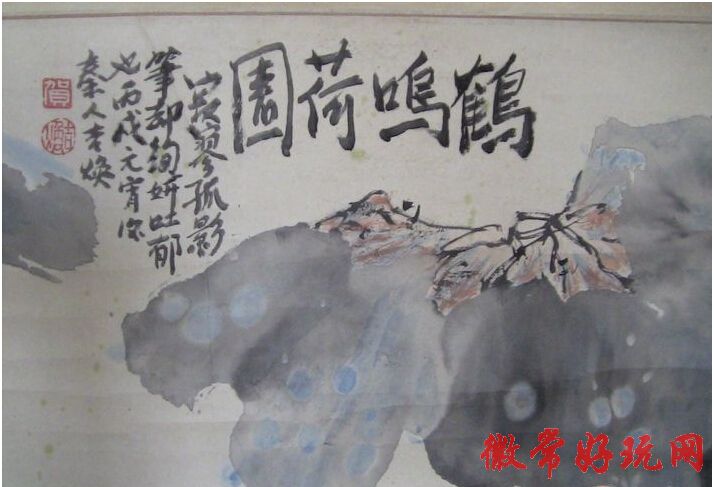 鶴鳴荷園
寂寥孤影
筆却絢妍吐郁
也丙戌元宵
秦人吉煥
賀
徽常好玩网